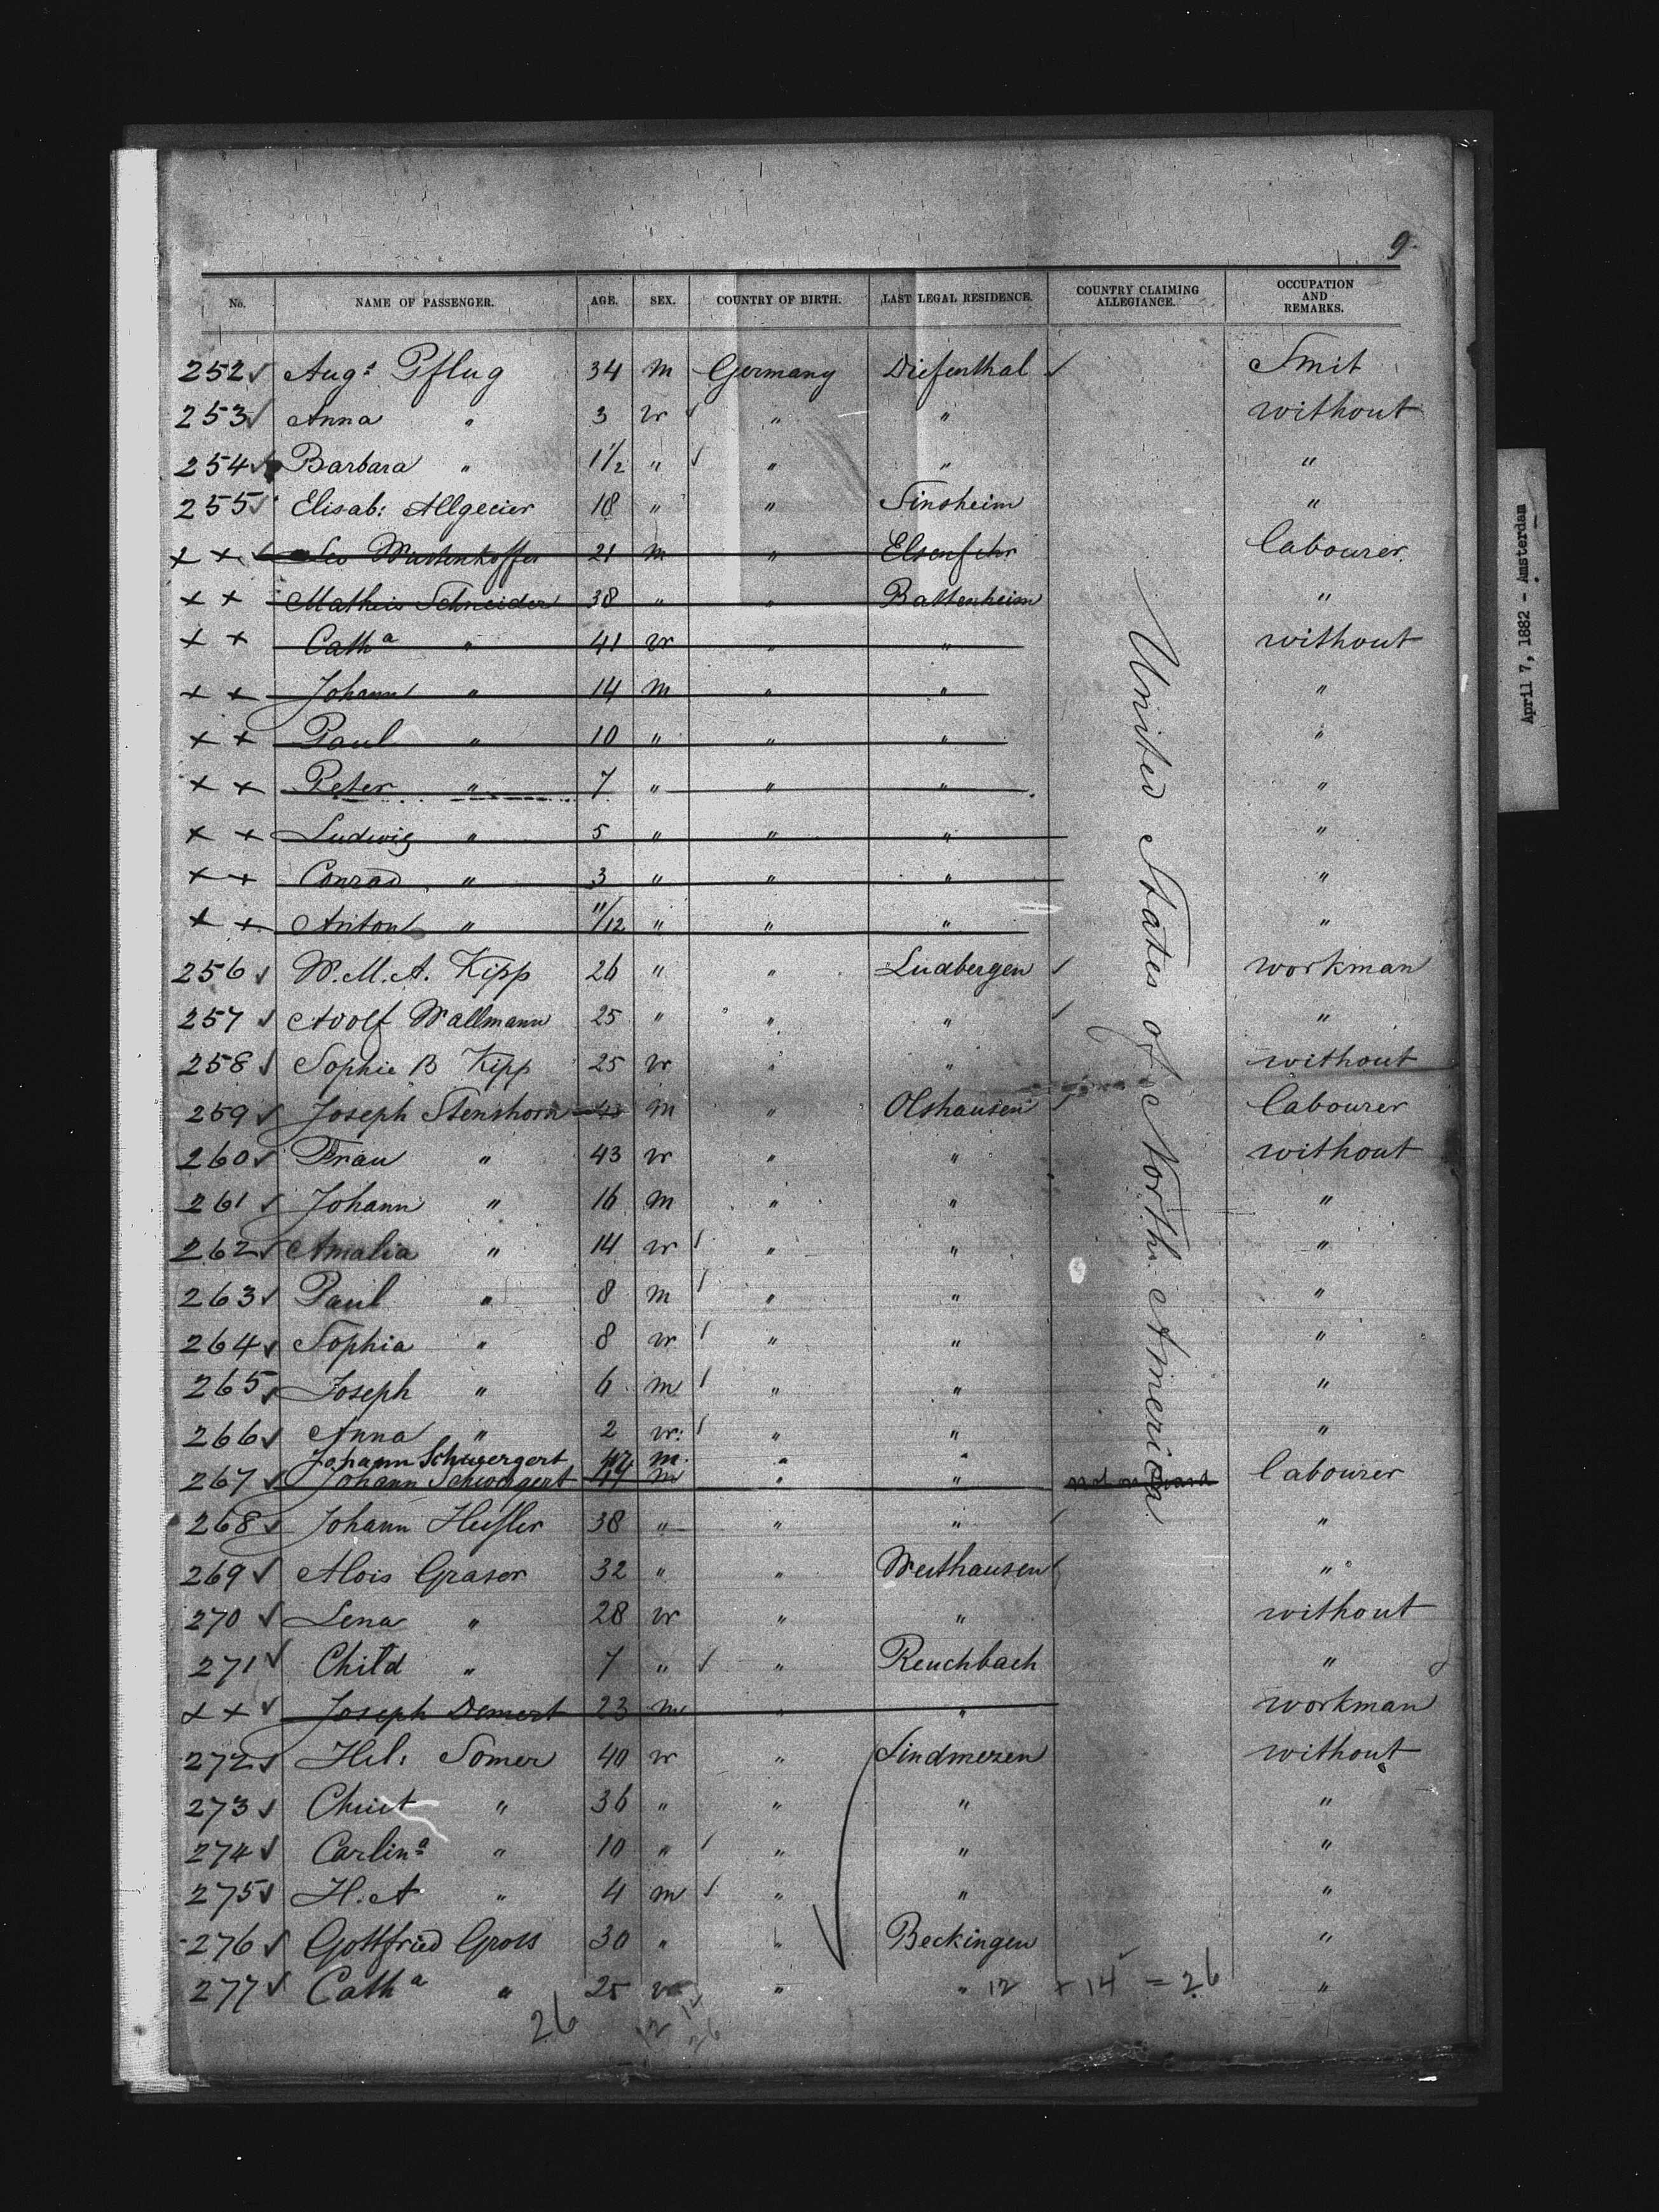 9.
No. NAME OF PASSENGER. AGE. SEX. COUNTRY OF BIRTH. LAST LEGAL RESIDENCE. COUNTRY CLAIMING ALLEGIANCE. OCCUPATION AND REMARKS.
252 ✓ Augt Pflug 34 m Germany Diefenthal ✓ Smit
253 ✓ Anna " 3 vr ✓ " " without
254 ✓ Barbara " 1 1/2 " ✓ " " "
255 ✓ Elisab: Allgeier 18 " " Sinsheim "
x x ✓ Leo 21 m " labourer
x x Matheis Schneider 38 " " Battenheim "
x x Catha " 41 vr " " without
x x Johann " 14 m " " "
x x Paul " 10 " " " "
x x Peter " 7 " " " "
x x Ludwig " 5 " " " "
x x Conrad " 3 " " " "
x x Anton " 11/12 " " " "
256 ✓ W. M. A. Kipp 26 " " Ludbergen ✓ workman
257 ✓ Adolf Wallmann 25 " " " ✓ "
258 ✓ Sophie B Kipp 25 vr " " without
259 ✓ Joseph Stenshorn 43 m " Olshausen ✓ labourer
260 ✓ Frau " 43 vr " " without
261 ✓ Johann " 16 m " " "
262 ✓ Amalia " 14 vr ✓ " " "
263 ✓ Paul " 8 m ✓ " " "
264 ✓ Sophia " 8 vr ✓ " " "
265 ✓ Joseph " 6 m ✓ " " "
266 ✓ Anna " 2 vr: ✓ " " "
Johann Schwergert 47 m. " "
267 ✓ Johann Schwergert 44 m " " not on board labourer
268 ✓ Johann 38 " " " ✓ "
269 ✓ Alois Graser 32 " " Westhausen ✓ "
270 ✓ Lena " 28 vr " " without
271 ✓ Child " 7 " ✓ " Reuchbach "
x x ✓ Joseph Demert 23 m " " workman
272 ✓ Hel: Somer 40 vr " Lindmezen without
273 ✓ Christ " 36 " " " "
274 ✓ Carlina " 10 " ✓ " " "
275 ✓ H. A " 4 m ✓ " " "
276 ✓ Gottfried Gross 30 " " Beckingen "
277 ✓ Catha " 25 vr " " "
12 + 14 = 26
26
United States of North America
April 7, 1882 - Amsterdam